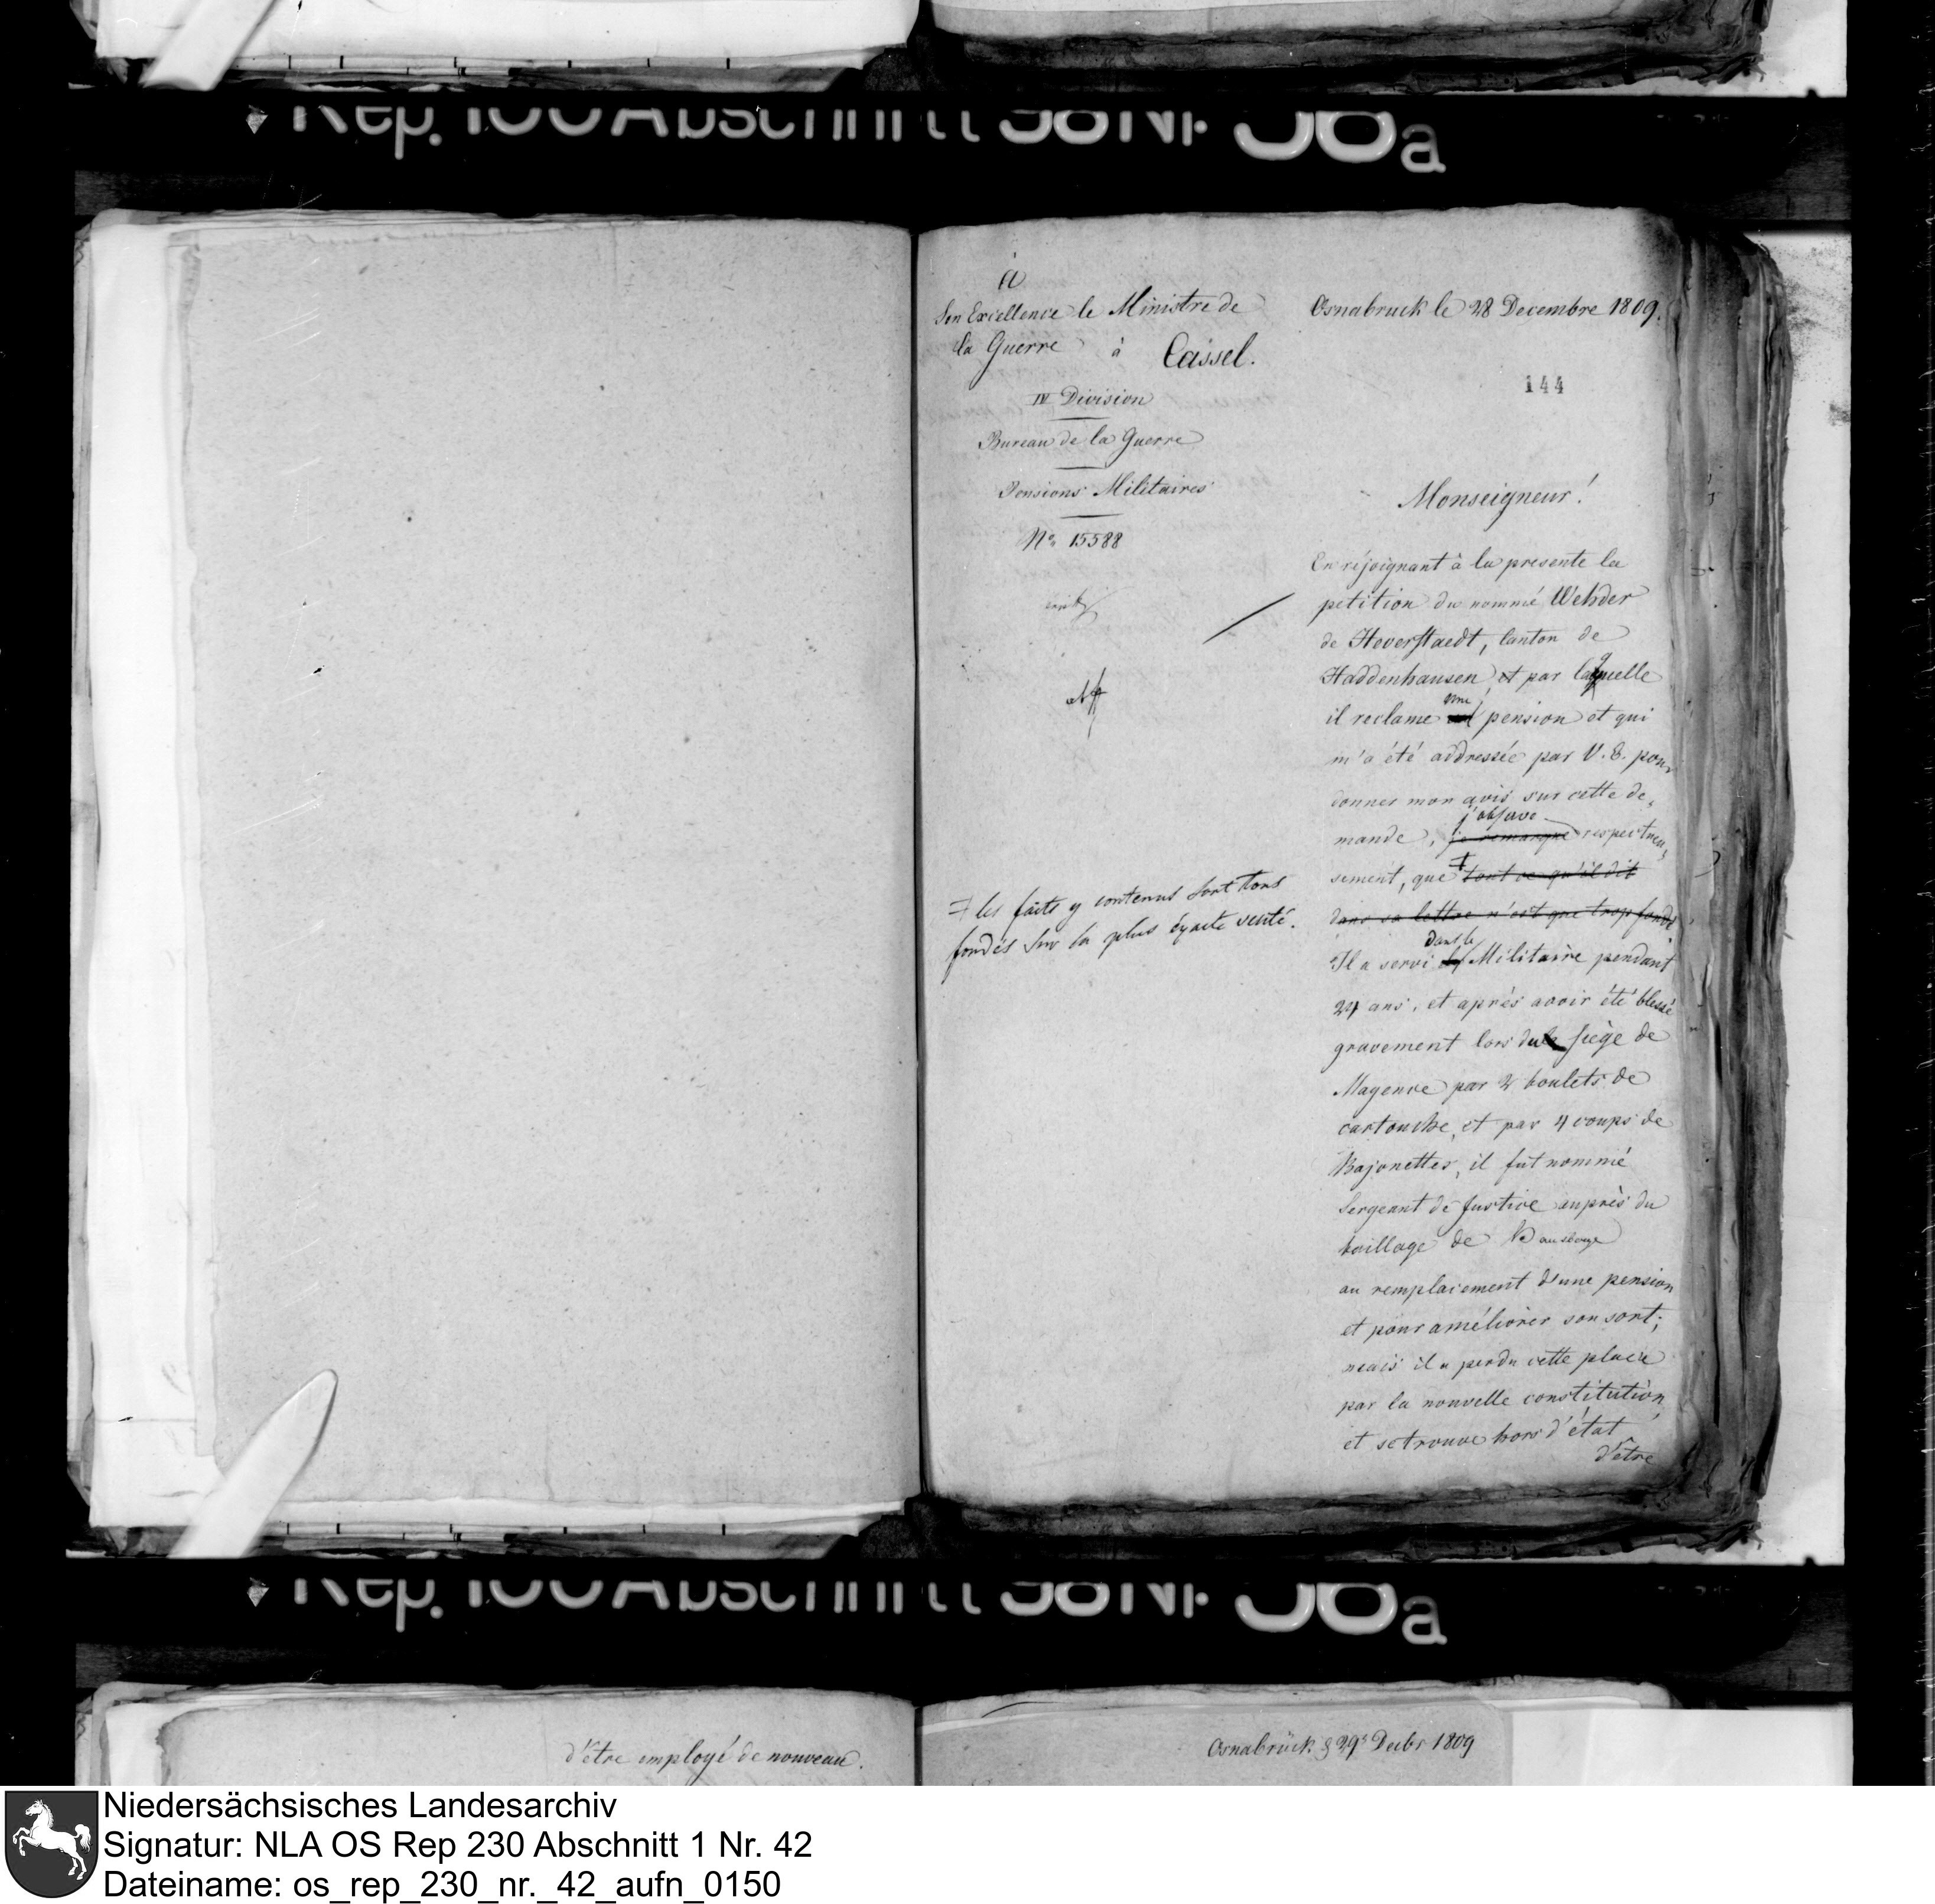 Rep. 100 Abschnitt 38 Nr. 36a
à
Son Excellence le Ministre de
la Guerre à Cassel.
IV Division
Bureau de la Guerre
Pensions Militaires
No. 15588
≠ les faits y contenus sont tous
fondés sur la plus éxacte verité.
Osnabruck le 28 Decembre 1809.
144
Monseigneur!
En réjoignant à la presente la
petition du nommé Wehder
de Heverstaedt, Canton de
Haddenhausen, et par laquelle
il reclame une pension et qui
m'a été addressée par V. E. pour
donner mon avis sur cette de,
mande, j'observe je remarque respectueu,
sement, que ≠ tout ce qu'il dit
dans sa lettre n'est que trop fondé
Il a servi dans le Militaire pendant
24 ans, et après avoir été blessé
gravement lors du siège de
Mayence par 2 boulets de
cartouche, et par 4 coups de
Bajonettes, il fut nommé
Sergeant de Justice auprès du
baillage de Hausberge
au remplacement d'une pension
et pour améliorer son sort;
mais il a perdu cette place
par la nouvelle constitution,
et se trouve hors d'état
d'être
Rep. 100 Abschnitt 38 Nr. 36a
d'être employé de nouveau.
Osnabrück d 29t Decbr 1809
Niedersächsisches Landesarchiv
Signatur: NLA OS Rep 230 Abschnitt 1 Nr. 42
Dateiname: os_rep_230_nr._42_aufn_0150